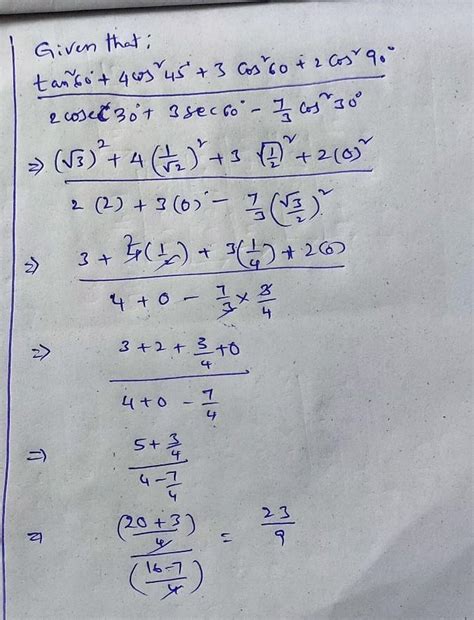 Given that;
tan²60° + 4cos²45° + 3 cos²60 + 2 cos²90°
2 cosec 30° + 3 sec 60° - 7/3 cos²30°
⇒ (√3)² + 4(1/√2)² + 3 √(1/2)² + 2(0)²
2(2) + 3(0)° - 7/3 (√3/2)²
⇒ 3 + 4(1/2) + 3(1/4) + 2(0)
4 + 0 - 7/3 × 3/4
⇒ 3+2+3/4+0
4+0-7/4
⇒ 5+3/4
4-7/4
⇒ (20+3)/4 = 23/9
(16-7)/4